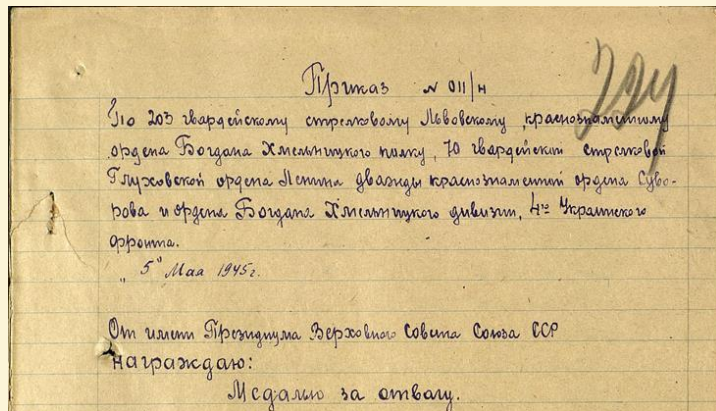 Приказ № 011/н
229
По 203 гвардейскому стрелковому Львовскому, краснознаменному
ордена Богдана Хмельницкого полку, 70 гвардейской стрелковой
Глуховской ордена Ленина дважды краснознаменной ордена Суво-
рова и ордена Богдана Хмельницкого дивизии, 4го Украинского
фронта.
"5" Мая 1945г.
От имени Президиума Верховного Совета Союза ССР
награждаю:
Медалью за отвагу.